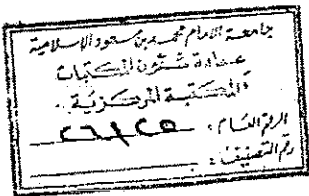 جامعة الامام محمد بن سعود الاسلامية
عمادة شئون المكتبات
المكتبة المركزية
الرقم العام:
رقم التصنيف: